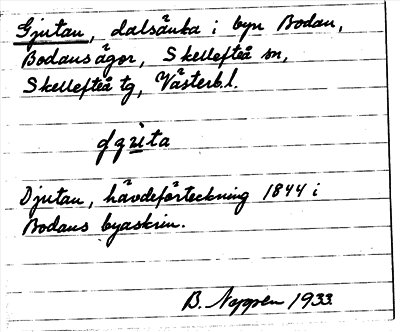 Gjutan, dalsänka i byn Bodan,
Bodans ägor, Skellefteå sn,
Skellefteå tg, Västerb.l.
Djutan, hävdeförteckning 1844 i
Bodans byaskrin.
B. Noppen 1933